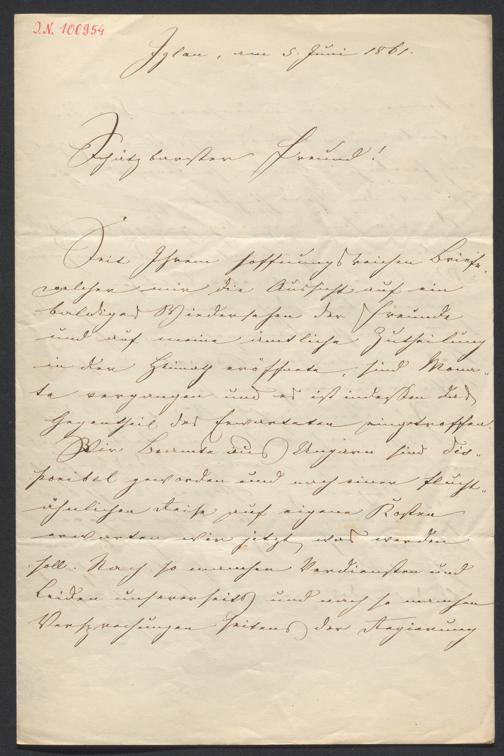 J.N. 100954
Iglau, am 5. Juni 1861.
Schätzbarster Freund!
Seit Ihrem hoffnungsreichen Briefe,
welcher mir die Aussicht auf ein
baldiges Wiedersehen der Freunde
und auf meine amtliche Zutheilung
in der Heimath eröffnete, sind Mona-
te vergangen und es ist indessen das
Gegentheil des Erwarteten eingetroffen.
Wir Beamte aus Ungarn sind dis-
ponibel geworden und nach einer flucht-
ähnlichen Reise auf eigene Kosten
erwarten wir jetzt, was werden
soll. Nach so manchen Verdiensten und
Leiden unsererseits und nach so manchen
Versprechungen seitens der Regierung